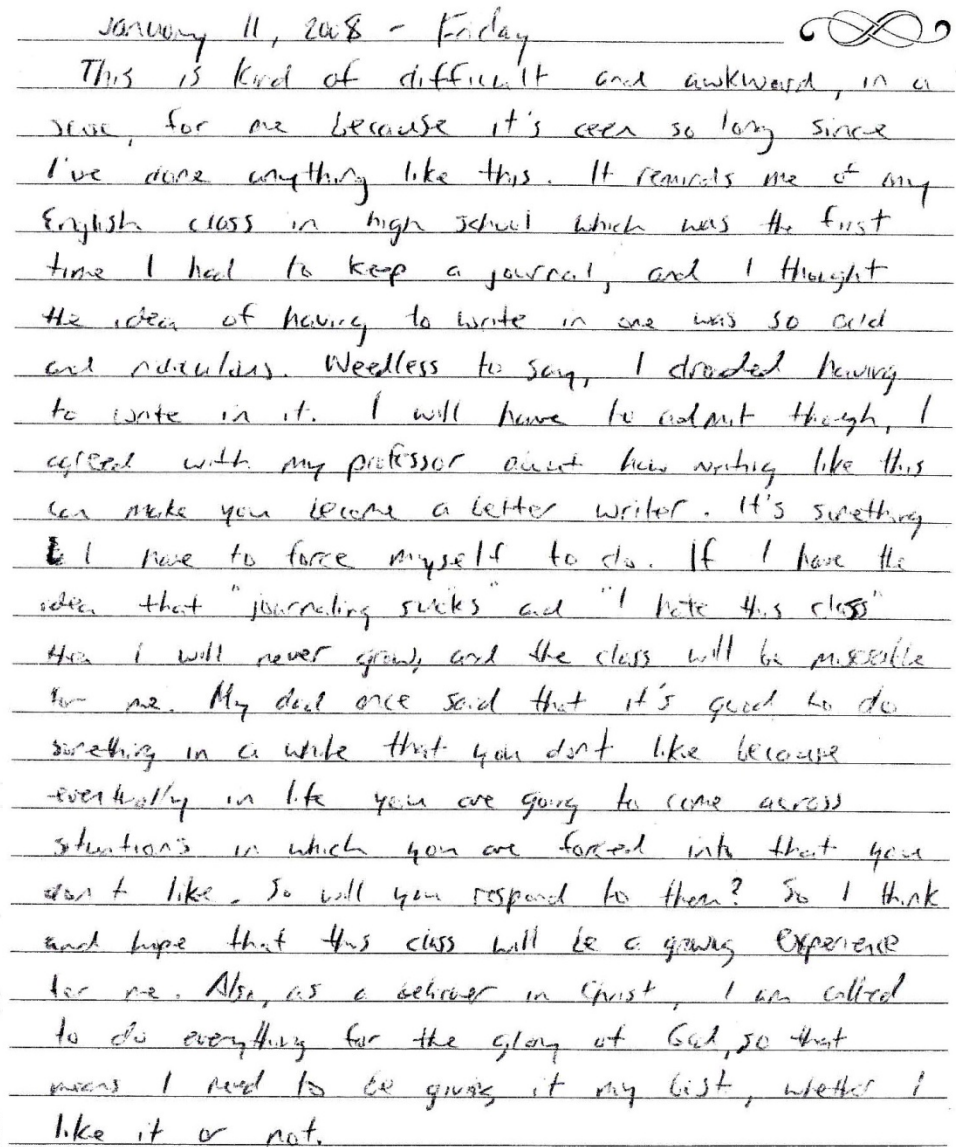 January 11, 2008 - Friday
This is kind of difficult and awkward, in a
sense, for me because it's been so long since
I've done anything like this. It reminds me of my
English class in high school which was the first
time I had to keep a journal, and I thought
the idea of having to write in one was so odd
and ridiculous. Needless to say, I dreaded having
to write in it. I will have to admit though, I
agreed with my professor about how writing like this
can make you become a better writer. It's something
I have to force myself to do. If I have the
idea that "journaling sucks" and "I hate this class"
then I will never grow, and the class will be
for me. My dad once said that it's good to do
something in a while that you don't like because
eventually in life you are going to come across
situations in which you are forced into that you
don't like. So will you respond to them? So I think
and hope that this class will be a growing experience
for me. Also, as a believer in Christ, I am called
to do everything for the glory of God, so that
means I need to be giving it my best, whether I
like it or not.